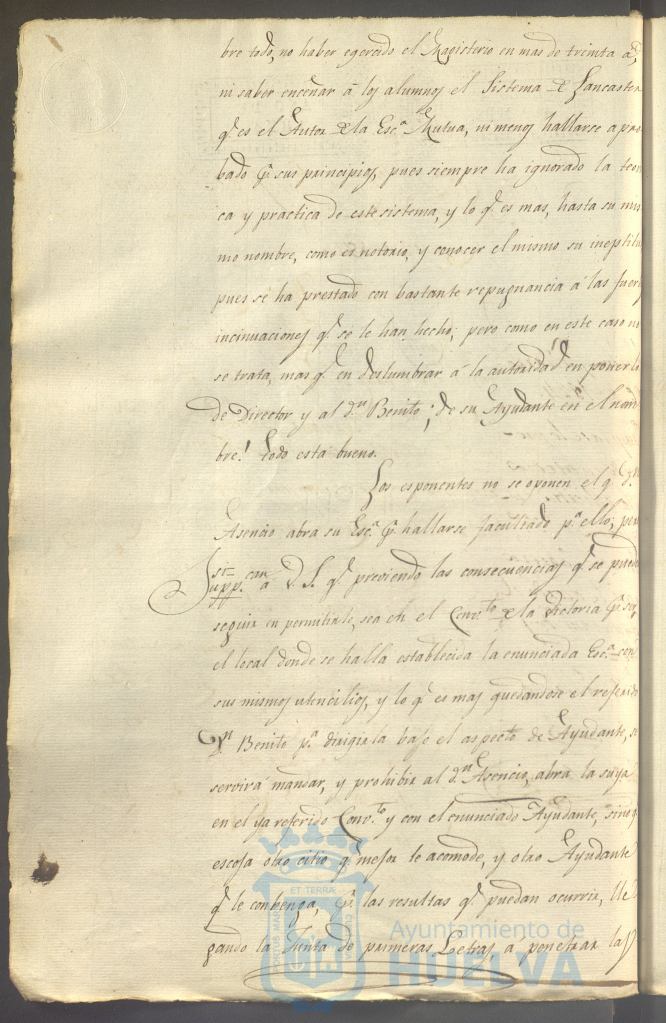 bre todo, no haber egercido el Magisterio en mas de treinta a.s
ni saber enceñar á los alumnos el Sistema de Lancaster
q.e es el Autor de la Esc.a Mutua, ni menos hallarse apro
bado p.r sus principios, pues siempre ha ignorado la teori
ca y practica de este sistema, y lo q.e es mas, hasta su mis
mo nombre, como es notorio, y conocer el mismo su ineptitu
pues se ha prestado con bastante repugnancia á las fuer
incinuaciones q.e se le han hecho; pero como en este caso no
se trata, mas q.e en deslumbrar á la autoridad en ponerle
de Director y al d.n Benito; de su Ayudante en el nom
bre! todo está bueno.
Los esponentes no se oponen el q. d.n
Asencio abra su Esc.a p.r hallarse facultado p.a ello; pero
Supp.can á V. S. q.e previendo las consecuencias q.e se pueden
seguir en permitirle, sea en el Conv.to de la Victoria p.r ser
el local donde se halla establecida la enunciada Esc.a con
sus mismos utencilios, y lo q.e es mas quedandose el referido
D.n Benito p.a dirigirla bajo el aspecto de Ayudante, se
servirá mandar, y prohibir al d.n Asencio, abra la suya
en el ya referido Conv.to y con el enunciado Ayudante, sino q.
escoja otro citio q.e mejor le acomode, y otro Ayudante
q.e le conbenga, p.r las resultas q.e puedan ocurrir, lle
gando la Junta de primeras Letras, a penetrar las
PORTUS MARIS
ET TERRÆ
CUSTODIA
Ayuntamiento de
HUELVA